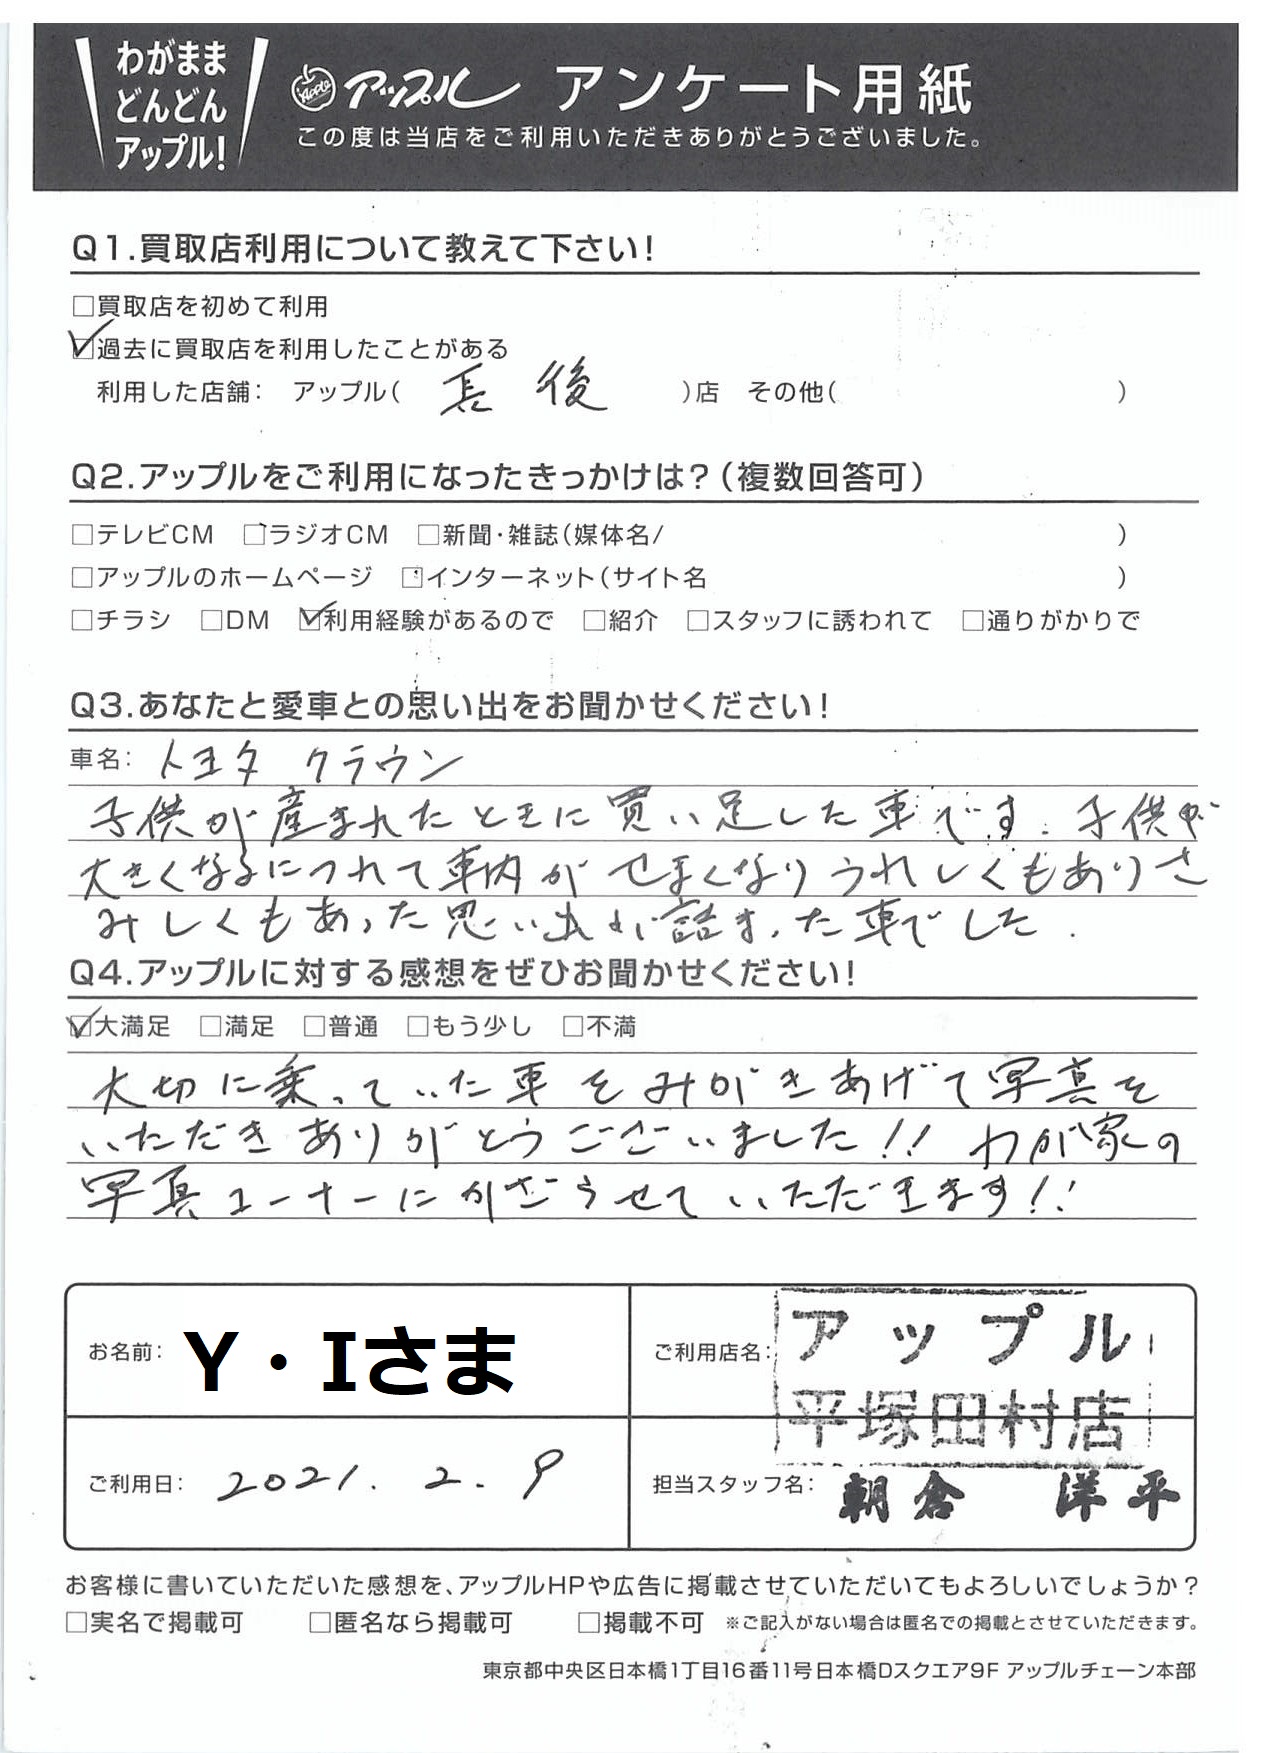 わがまま
どんどん
アップル!
Apple アップル アンケート用紙
この度は当店をご利用いただきありがとうございました。
Q1.買取店利用について教えて下さい!
□買取店を初めて利用
☑過去に買取店を利用したことがある
利用した店舗: アップル( 長後 )店 その他( )
Q2.アップルをご利用になったきっかけは?(複数回答可)
□テレビCM □ラジオCM □新聞・雑誌(媒体名/ )
□アップルのホームページ □インターネット(サイト名 )
□チラシ □DM ☑利用経験があるので □紹介 □スタッフに誘われて □通りがかりで
Q3.あなたと愛車との思い出をお聞かせください!
車名: トヨタ クラウン
子供が産まれたときに買い足した車です。子供が
大きくなるにつれて車内がせまくなりうれしくもありさ
みしくもあった思い出が詰まった車でした.
Q4.アップルに対する感想をぜひお聞かせください!
☑大満足 □満足 □普通 □もう少し □不満
大切に乗っていた車をみがきあげて写真を
いただきありがとうございました!! わが家の
写真コーナーにかざらせていただきます!!
お名前: Y・Iさま
ご利用店名: アップル
平塚田村店
ご利用日: 2021. 2. 9
担当スタッフ名: 朝倉 洋平
お客様に書いていただいた感想を、アップルHPや広告に掲載させていただいてもよろしいでしょうか?
□実名で掲載可 □匿名なら掲載可 □掲載不可 ※ご記入がない場合は匿名での掲載とさせていただきます。
東京都中央区日本橋1丁目16番11号日本橋Dスクエア9F アップルチェーン本部